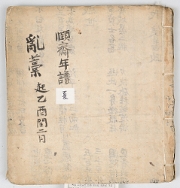 頤齋年譜
亂藁 起乙酉閏二月